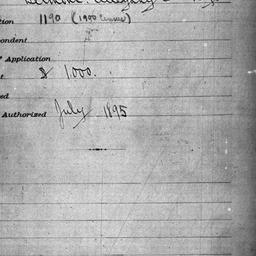 tion 1190 (1900 Census)
pondent
f Application
t $ 1,000.
ed
Authorized July 1895